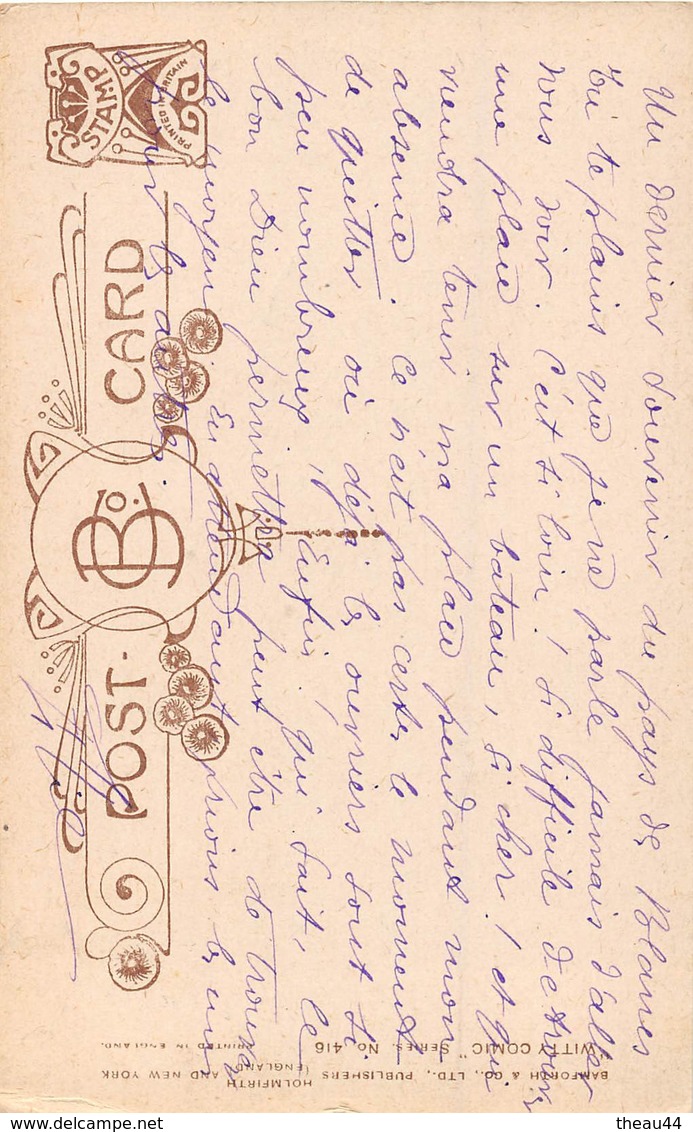 Un dernier souvenir du pays des Blancs
Tu te plains que je ne parle jamais d'aller
vous voir. C'est si loin! Si difficile de trouver
une place sur un bateau, si cher! et qui
viendra tenir ma place pendant mon
absence. Ce n'est pas certes le moment
de quitter où déjà les ouvriers sont si
peu nombreux, Enfin! qui sait, le
bon Dieu permettra peut être de trouver
le moyen. En attendant prions les uns
pour les autres.
POST-CARD
B & Co.
STAMP
PRINTED IN BRITAIN
BAMFORTH & CO., LTD., PUBLISHERS
HOLMFIRTH (ENGLAND) AND NEW YORK
"WITTY COMIC" SERIES. No. 416
PRINTED IN ENGLAND.
theau44